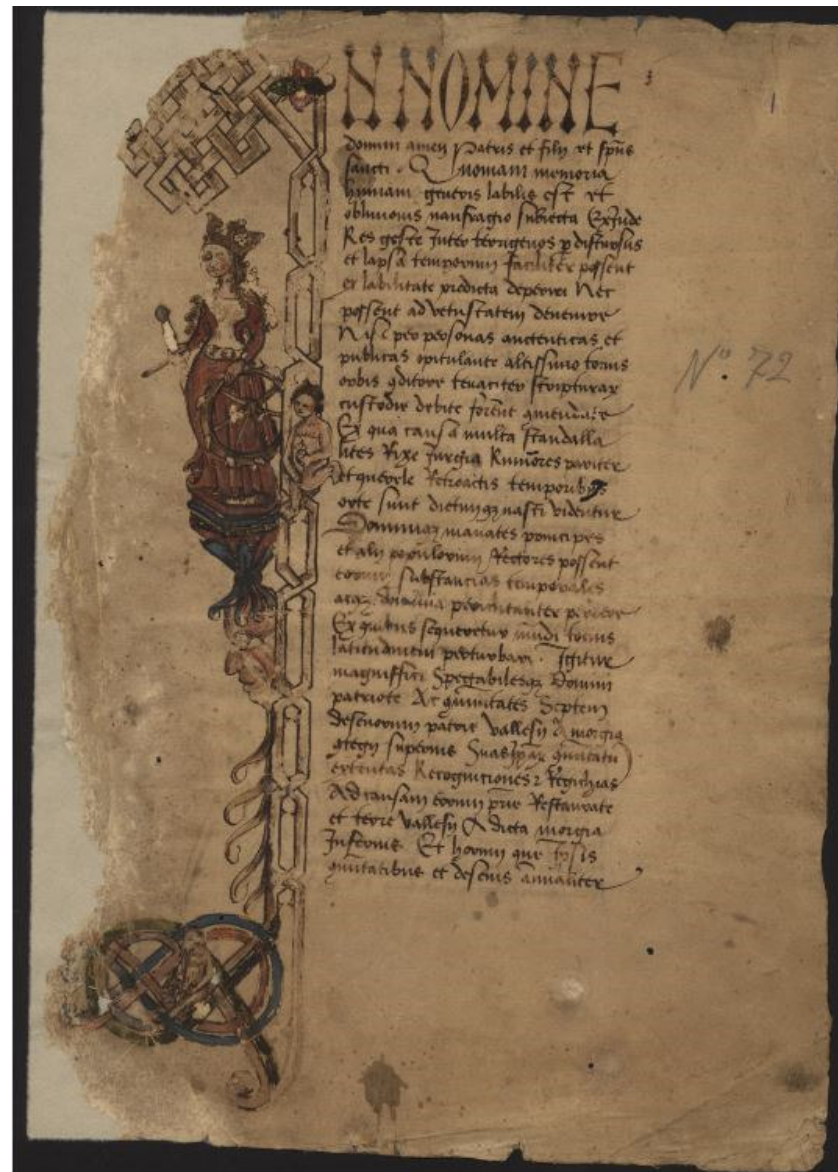 IN NOMINE
domini amen Patris et filij et spūs
sancti. Quoniam memoria
humani generis labilis est et
oblivionis naufragio subiecta Exinde
Res geste Inter terrigenos p discursus
et lapsa temporum faciliter possent
ex labilitate predicta deperiri Nec
possent ad vetustatem devenire
Nisi per personas auctenticas et
publicas opitulante altissimo totius
orbis qditore tenaciter scripturar
custodie debite forent
Ex qua causa multa scandalla
lites Rixe Jurgia Rumores pariter
et querele Retroactis temporibus
orte sunt nasci videntur
principes
et alij populorum Rectores possent
eorum substancias temporales
Ex quibus sequeretur mūdi totius
latitudinem perturbari. Igitur
magniffici Spectabilesqz Domini
patriote Ac qmunitates Septem
desenorum patrie vallesij A morgia
superius Suas
extentas Recogniciones
Ad causam eorum Restaurate
et terre vallesij A dicta morgia
Inferius Et horum que Ipsis
qmutatibus et desenis
N° 72
1